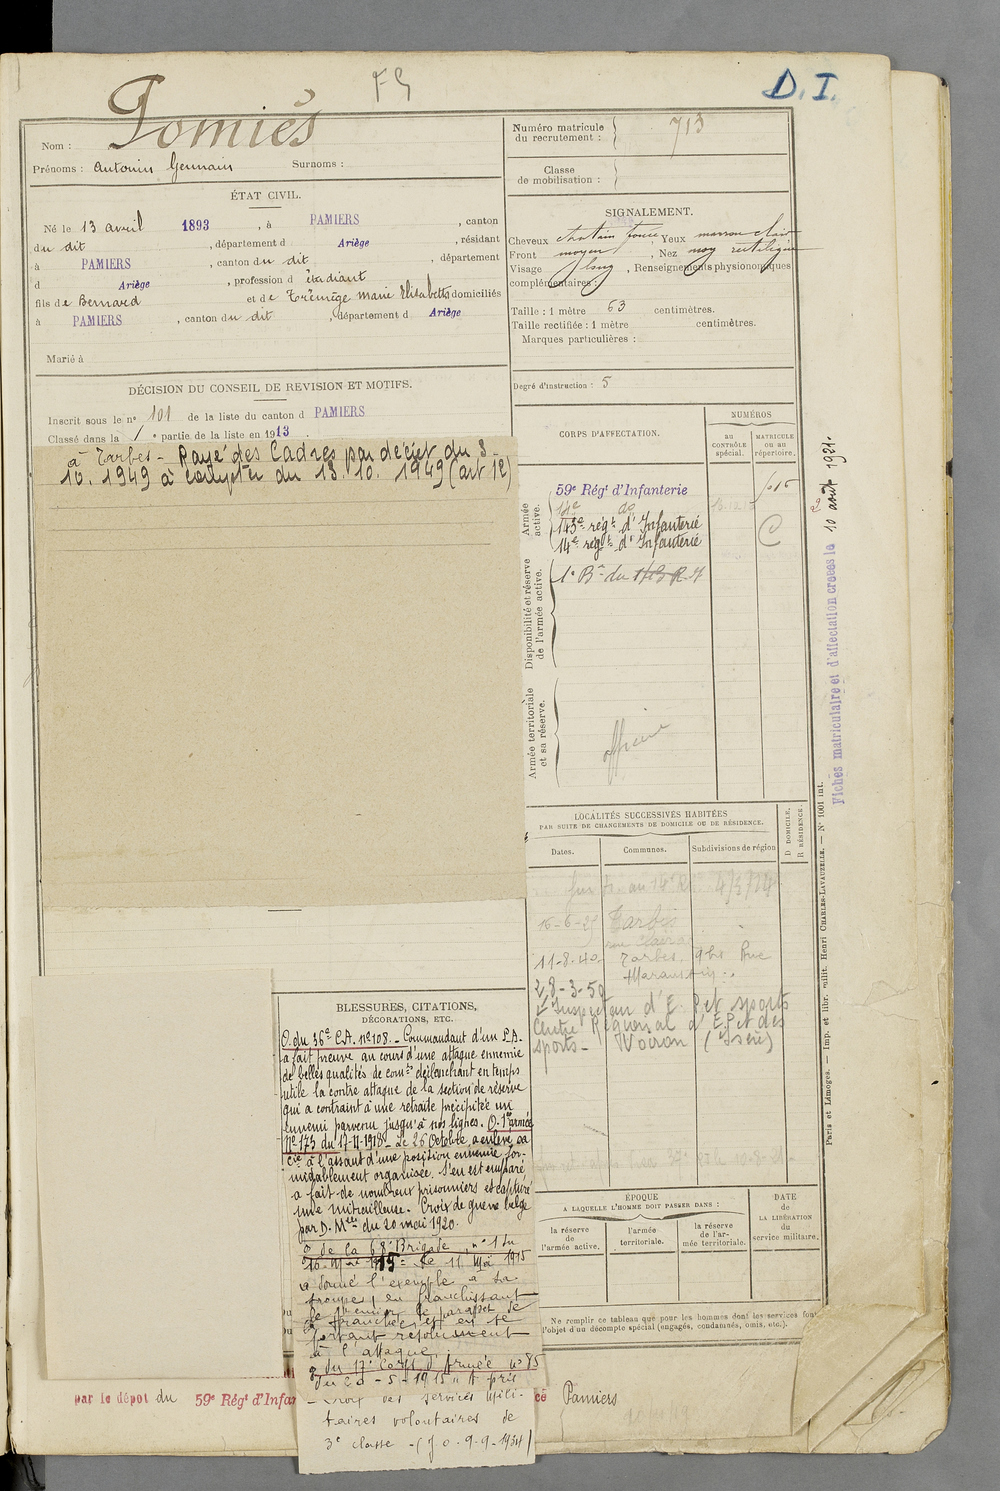 FG
D. I.
Nom : Pomiès
Prénoms : Antonin Germain Surnoms :
Numéro matricule du recrutement : 713
Classe de mobilisation :
ÉTAT CIVIL.
Né le 13 avril 1893, à PAMIERS, canton
du dit, département d Ariège, résidant
à PAMIERS, canton du dit, département
d Ariège, profession d étudiant
fils de Bernard et de Trémège Marie Elisabeth domiciliés
à PAMIERS, canton du dit, département d Ariège
Marié à
SIGNALEMENT.
Cheveux chatain foncé, Yeux marron clair
Front moyen, Nez moy rectiligne
Visage long, Renseignements physionomiques
complémentaires :
Taille : 1 mètre 63 centimètres.
Taille rectifiée : 1 mètre centimètres.
Marques particulières :
Degré d'instruction : 5
DÉCISION DU CONSEIL DE REVISION ET MOTIFS.
Inscrit sous le n° 101 de la liste du canton d PAMIERS
Classé dans la 1e partie de la liste en 1913
à Tarbes - Rayé des Cadres par décret du 3-
10. 1949 à compter du 13. 10. 1949 (art 12)
CORPS D'AFFECTATION.
NUMÉROS
AU CONTRÔLE spécial.
MATRICULE ou au répertoire.
Armée active.
59e Régt d'Infanterie
14e do
143e régt d'Infanterie
14e régt d'Infanterie
Disponibilité et réserve de l'armée active.
Armée territoriale et sa réserve.
officier
Fiches matriculaire et d'affectation créées le 10 août 1921.
LOCALITÉS SUCCESSIVES HABITÉES
PAR SUITE DE CHANGEMENTS DE DOMICILE OU DE RÉSIDENCE.
Dates. Communes. Subdivisions de région
D DOMICILE. R RÉSIDENCE.
16-6-25 Tarbes
11-8-40 Tarbes, 9 bis Rue
28-3-50
Inspecteur d'E. P. et sports
Centre Régional d'E.P. et des
sports - Voiron (Isère)
Paris et Limoges. — Imp. et libr. milit. Henri CHARLES-LAVAUZELLE. — N° 1001 int.
BLESSURES, CITATIONS,
DÉCORATIONS, ETC.
O. du 36e C.A. n° 108. - Commandant d'un P.A.
a fait preuve au cours d'une attaque ennemie
de belles qualités de comt déclanchant en temps
utile la contre attaque de la section de réserve
qui a contraint à une retraite précipitée un
ennemi parvenu jusqu'à nos lignes. O. 1re armée
N° 173 du 17-11-1918 - Le 26 Octobre a enlevé sa
cie à l'assaut d'une position ennemie for-
midablement organisée. S'en est emparé
a fait de nombreux prisonniers et capturé
une mitrailleuse. Croix de guerre belge
par D. Mle du 20 mai 1920.
O de la 68e Brigade n° 1 du
16 Mai 1915 - Le 11 Mai 1915
a donné l'exemple à sa
troupe en franchissant
le premier le parapet de
la tranchée et en se
portant résolument
à l'attaque.
O du 17e Corps d'Armée n° 85
- Croix des services mili-
taires volontaires de
3e classe - (J O. 9-9-1934)
ÉPOQUE
A LAQUELLE L'HOMME DOIT PASSER DANS :
la réserve de l'armée active.
l'armée territoriale.
la réserve de l'armée territoriale.
DATE DE LA LIBÉRATION du service militaire.
Ne remplir ce tableau que pour les hommes dont les services font
l'objet d'un décompte spécial (engagés, condamnés, omis, etc.).
par le dépôt du 59e Régt d'Infan
Pamiers